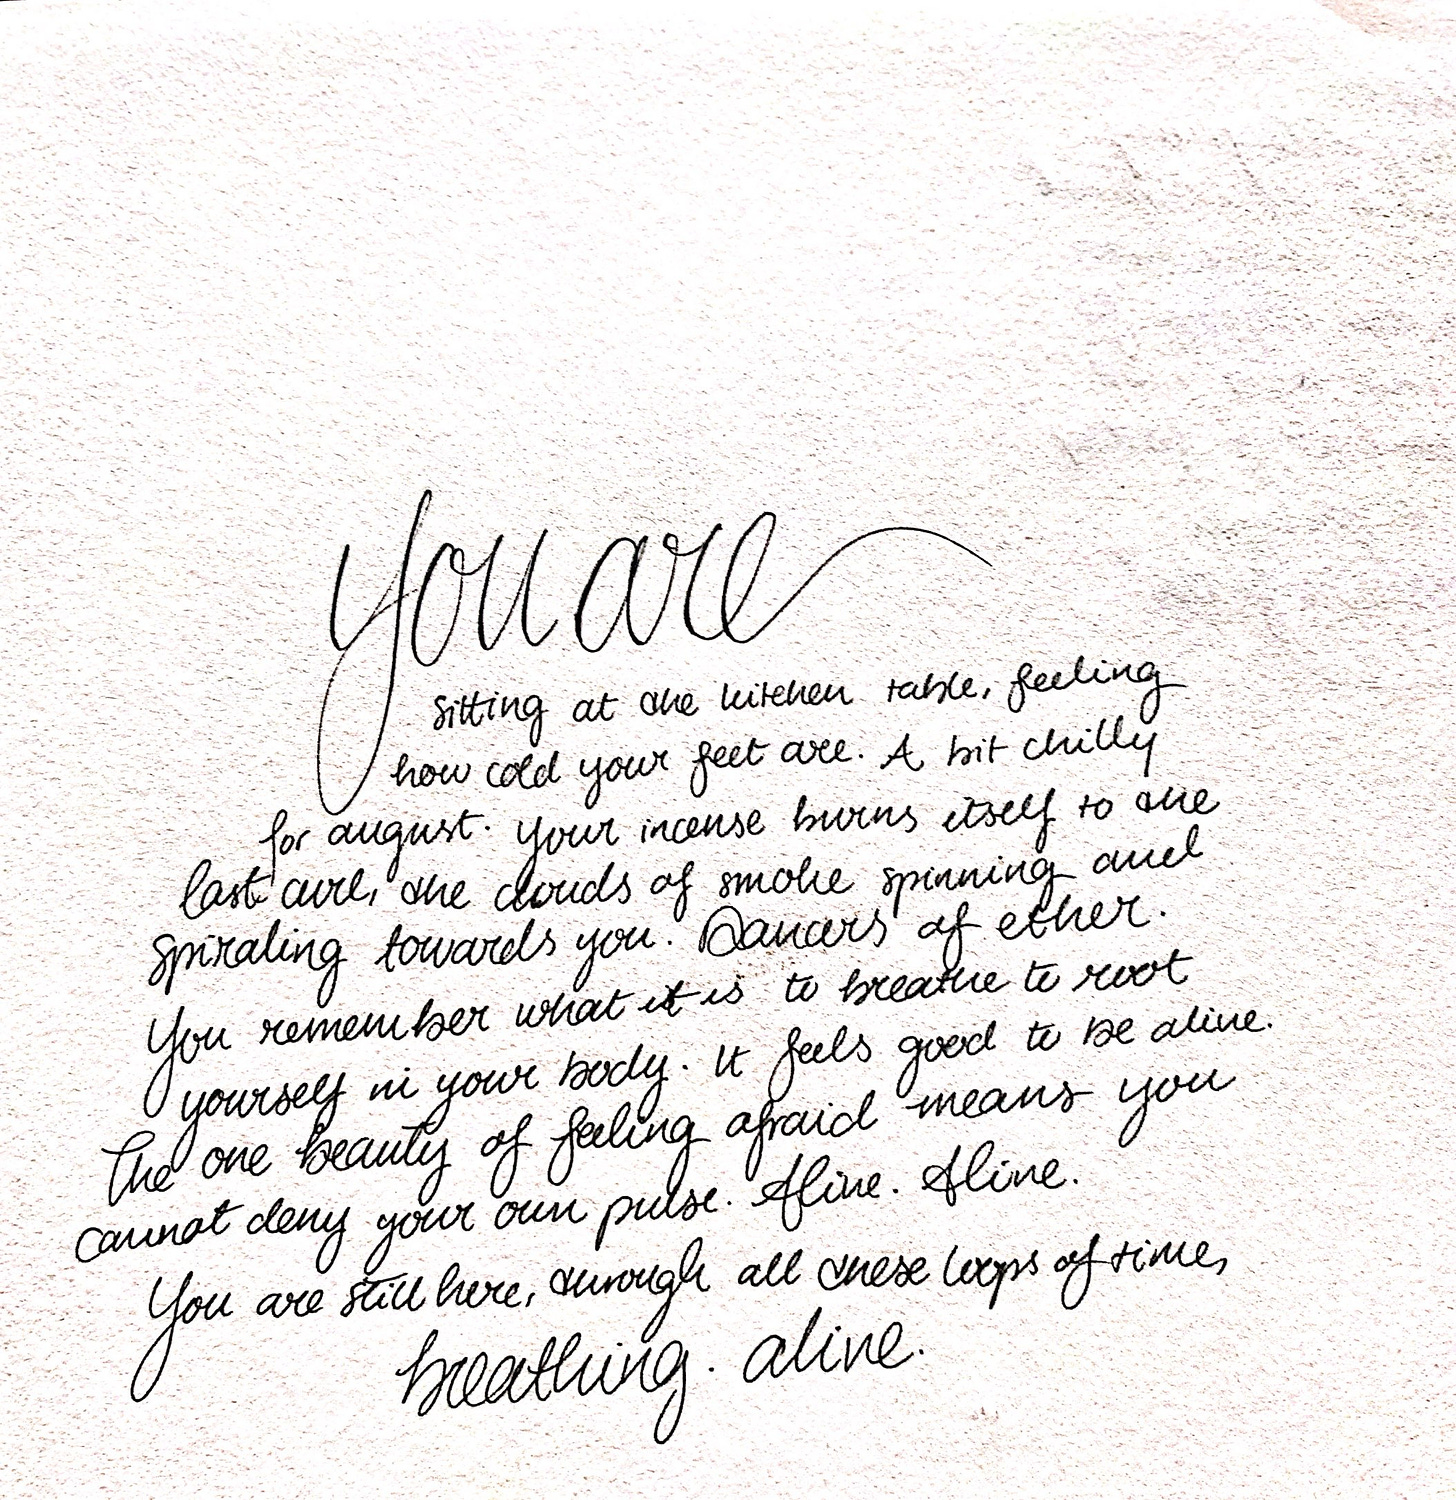 you are
sitting at the kitchen table, feeling
how cold your feet are. A bit chilly
for august. Your incense burns itself to the
last curl, the clouds of smoke spinning and
spiraling towards you. Dancers of ether.
You remember what it is to breathe to root
yourself in your body. It feels good to be alive.
The one beauty of feeling afraid means you
cannot deny your own pulse. Alive. Alive.
You are still here, through all these loops of time,
breathing. alive.